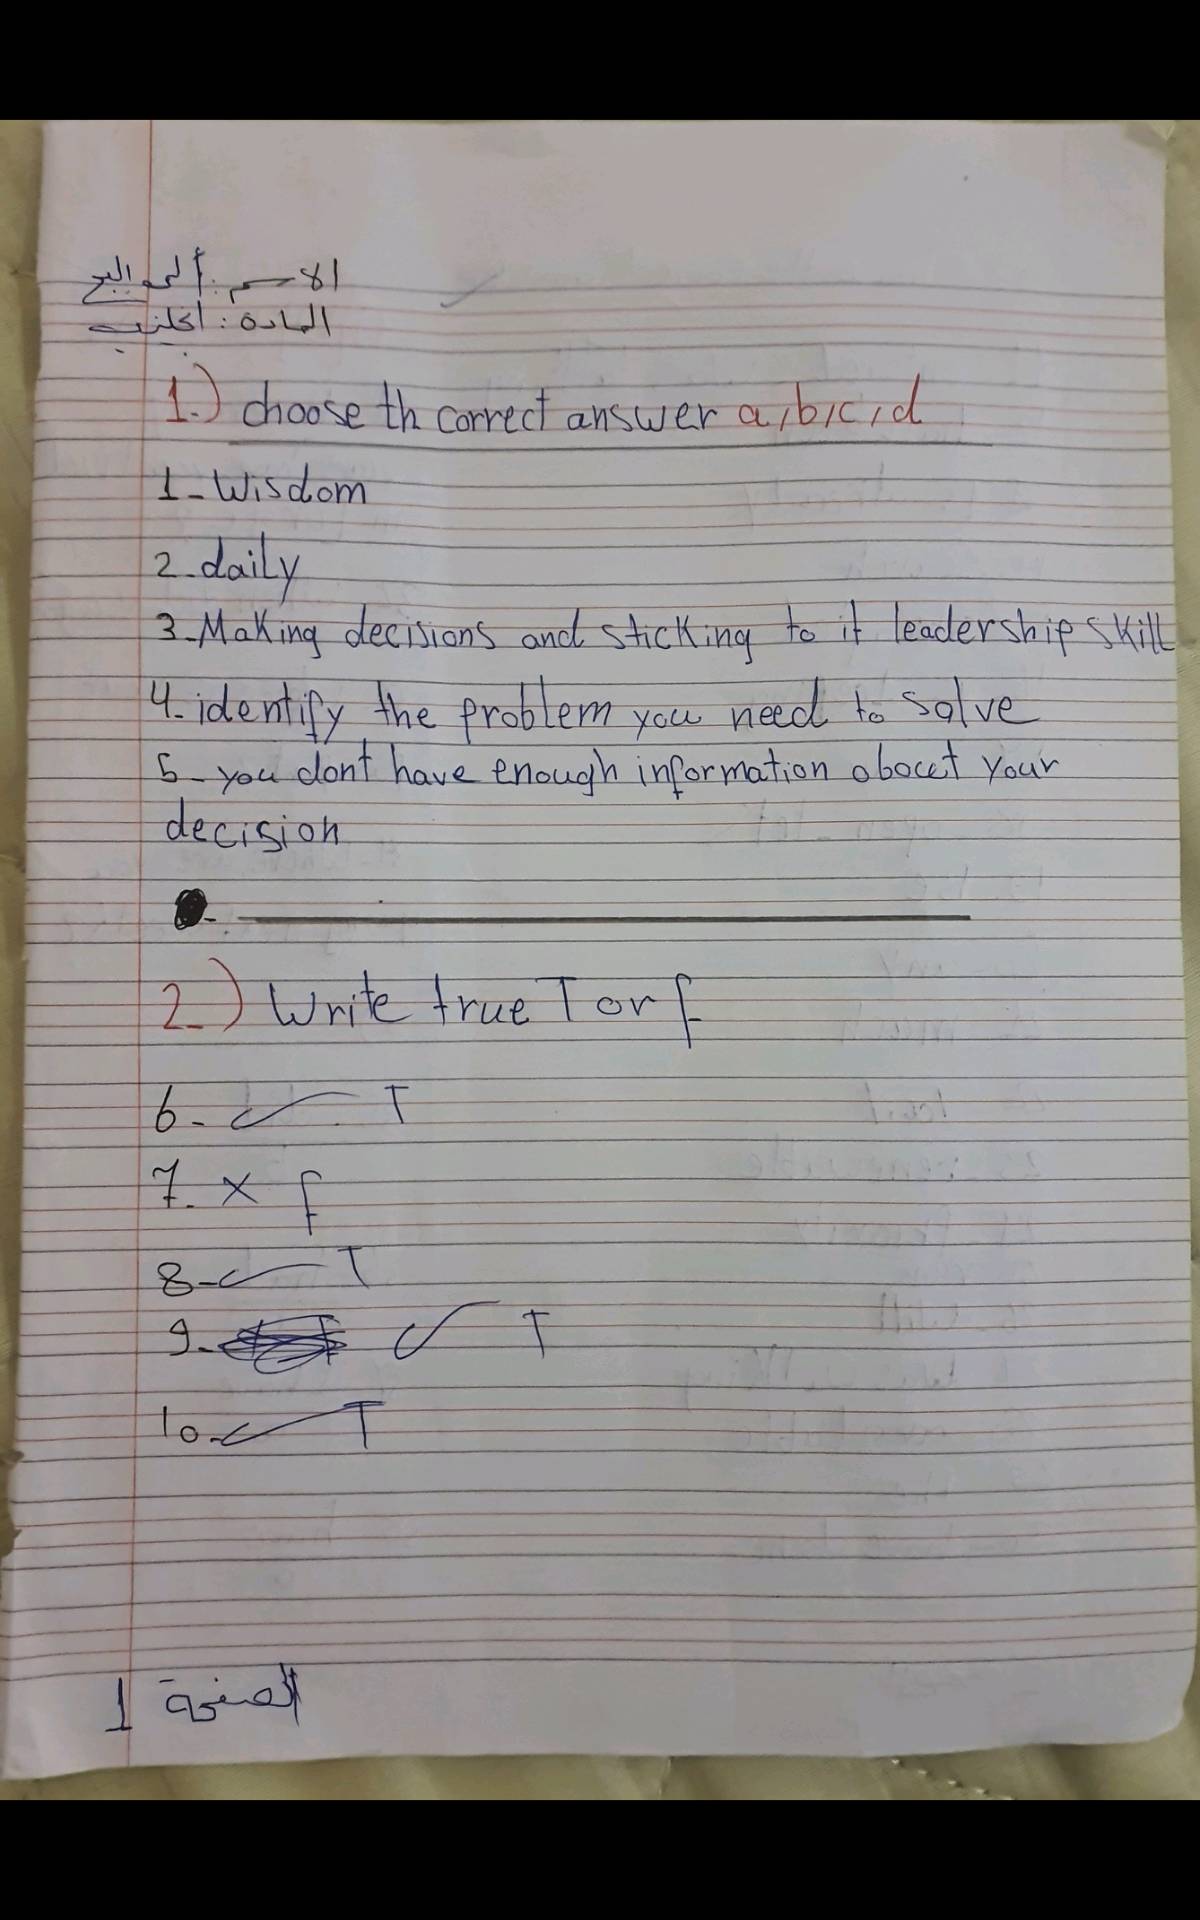 الاسم: ألمى
المادة: انجلنيب
1.) choose th correct answer a,b,c,d
1- Wisdom
2- daily
3- Making decisions and sticking to it leadership skill
4- identify the problem you need to solve
5- you dont have enough information about your
decision
2-) Write true T or f
6- ✓ T
7- × f
8- ✓ T
9- ✓ T
10- ✓ T
الصفحة 1